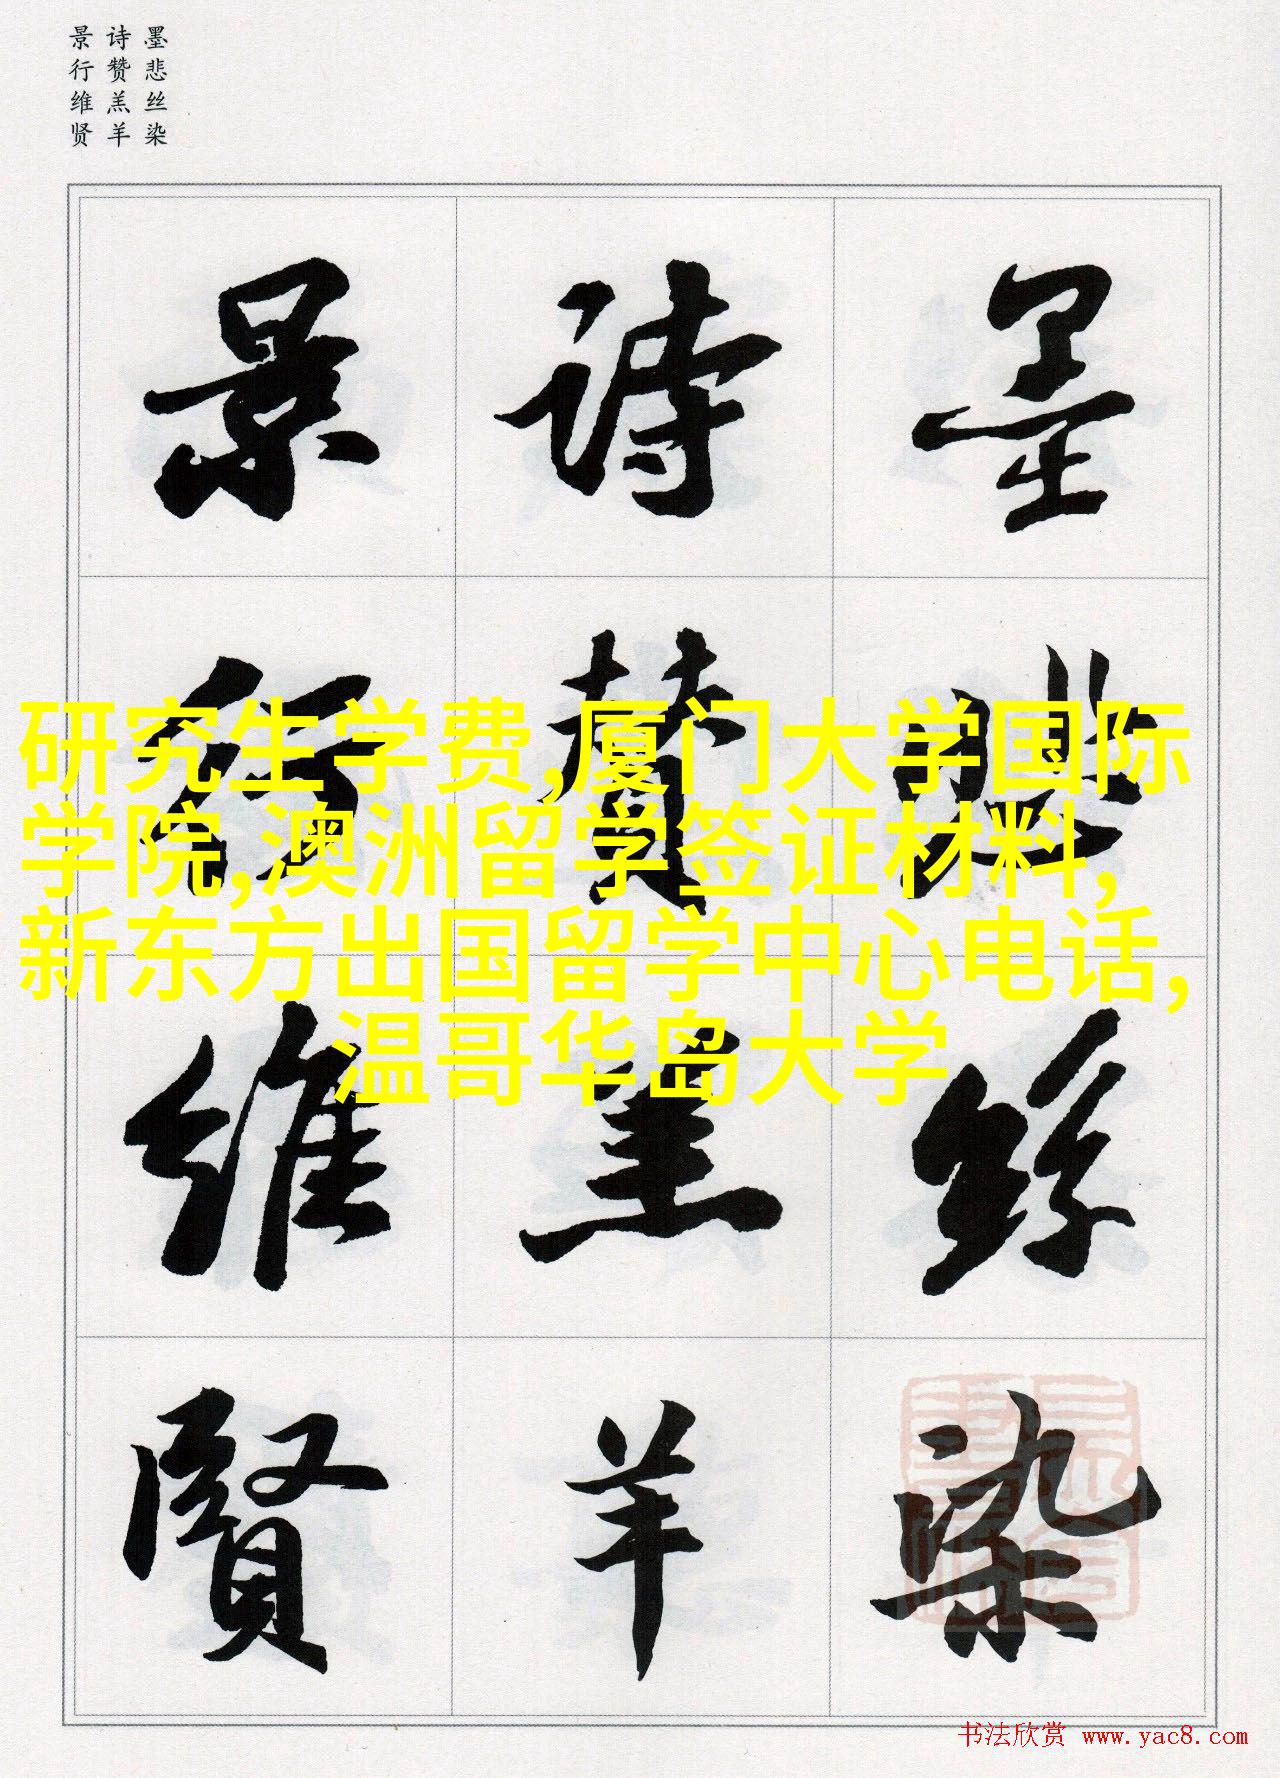 墨悲丝染
诗赞羔羊
景行维贤
墨悲絲染
詩贊羔羊
景行維賢
研究生学费,厦门大学国际
学院,澳洲留学签证材料,
新东方出国留学中心电话,
温哥华岛大学
书法欣赏 www.yac8.com